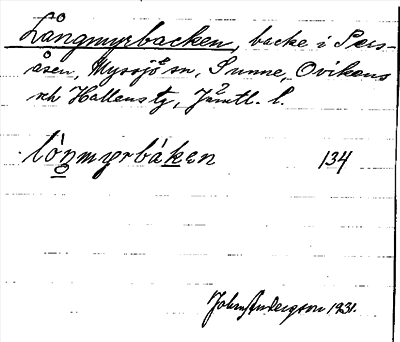 Långmyrbacken, backe i Pers-
åsen, Myssjö sn, Sunne, Ovikens
och Hallens tg, Jämtl. l.
lòŋmyrbákεn 134
John Anderson 1931.